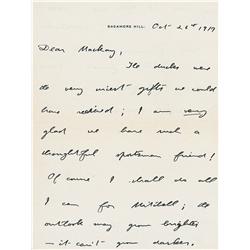 SAGAMORE HILL. Oct 26th 1919
Dear Mackay,
The ducks were
the very nicest gifts we could
have received; I am very
glad we have such a
thoughtful sportsman friend!
Of course I shall do all
I can for Mitchell; the
outlook may grow brighter
- it can't grow darker.